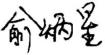 俞炳星